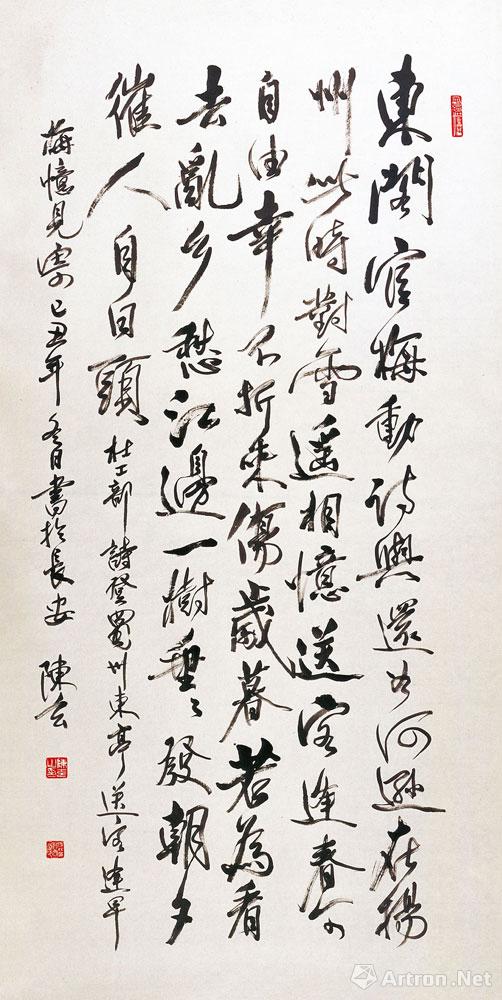 東閣官梅動詩興還如何遜在揚
州此時對雪遥相憶送客逢春可
自由幸不折來傷歲暮若為看
去亂乡愁江邊一樹垂々發朝夕
催人自白頭 杜工部詩登蜀州東亭送客逢早
梅憶見寄己丑年冬日書於長安 陳云
Artron.Net